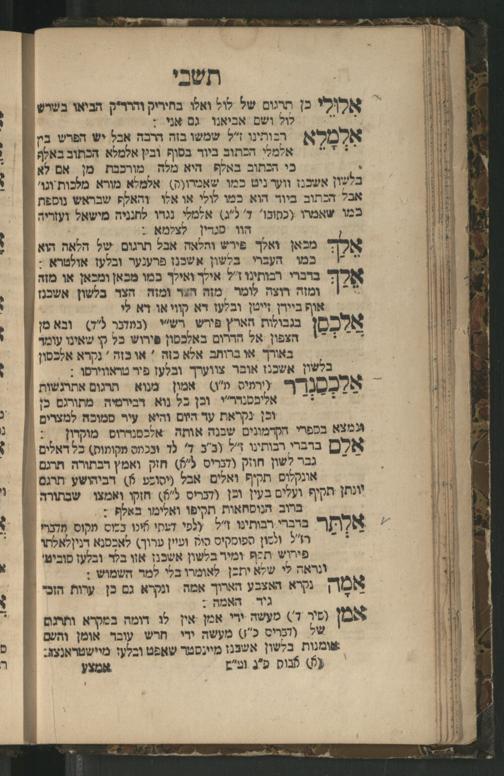 תשבי
אלולי כן תרגום של לול ואלו בחיריק והרד״ק הביאו בשרש
לול ושם אביאנו גם אני :
אלמלא רבותינו ז״ל שמשו בזה הרבה אבל יש הפרש בין
אלמלי הכתוב ביוד בסוף ובין אלמלא הכתוב באלף
כי הכתוב באלף היא מלה מורכבת מן אם לא
בלשון אשכנז ווער ניט כמו שאמרו(ה) אלמלא מורא מלכות וגו׳
אבל הכתוב ביוד הוא כמו לולי או אלו והאלף שבראש נוספת
כמו שאמרו (כתובו׳ ד׳ ל״ג) אלמלי נגדו לחנניה מישאל ועזריה
הוו סגדין לצלמא :
אלך מכאן ואלך פירש והלאה אבל תרגום של הלאה הוא
כמו העברי בלשון אשכנז פרענער ובלעז אולטרא :
אלך בדברי רבותינו ז״ל אילך ואילך כמו מכאן ומכאן או מזה
ומזה רוצה לומר מזה הצד ומזה הצד בלשון אשכנז
אויף ביידן זייטן ובלעז דא קווי או דא לי
אלכסן בגבולות הארץ פירש רש״י (במדבר ל״ד) ובא מן
הצפון אל הדרום באלכסון פירוש כל קו שאינו עומד
באורך או ברוחב אלא כזה / או כזה \ נקרא אלכסון
בלשון אשכנז אובר צווערך ובלעז פיר טראווירסו :
אלכסנדר (ירמיה מ״ו) אמון מנוא תרגום אתרגושות
אליכסנדר״י וכן כל נוא דבירמיה מתורגם כן
וכן נקראת עד היום והיא עיר סמוכה למצרים
ונמצא בספרי הקדמונים שבנה אותה אלכסנדרוס מוקדון :
אלם בדברי רבותינו ז״ל (ב״ב ד׳ לד ובכמה מקומות) כל דאלים
גבר לשון חוזק (דברים ל״א) חזק ואמץ דבתורה תרגם
אונקלוס תקיף ואלים אבל (יהושע א) דביהושע תרגם
יונתן תקיף ועלים בעין וכן (דברים ל״א) חזקו ואמצו שבתורה
ברוב הנוסחאות תקיפו ואלימו באלף :
אלתר בדברי רבותינו ז״ל
פירוש תכף ומיד בלשון אשכנז אזו בלד ובלעז סוביט׳
ונראה לי שלא יתכן לאומרו בלי למד השמוש :
אמה נקרא האצבע הארוך אמה ונקרא גם כן ערות הזכר
גיד האמה :
אמן (שיר ד׳) מעשה ידי אמן אין לו דומה במקרא ותרגום
של (דברים כ״ז) מעשה ידי חרש עובד אומן והשם
אומנות בלשון אשכנז מיינסטר שאפט ובלעז מיישטראנצה :
(א) אבות פ״ג וש״ס
אמצע